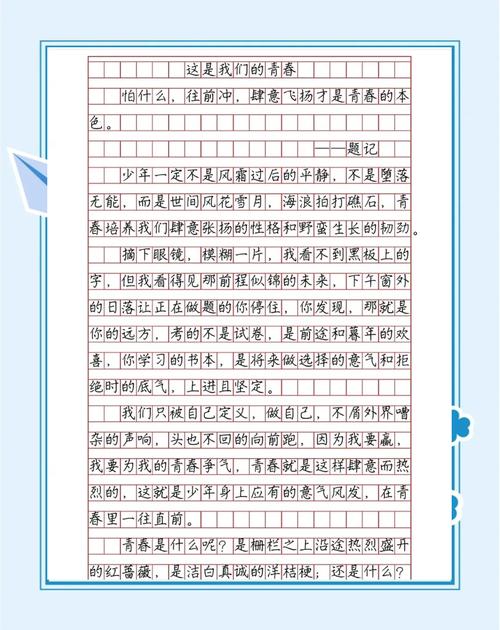 这是我们的青春
怕什么，往前冲，肆意飞扬才是青春的本
色。
——题记
少年一定不是风霜过后的平静，不是堕落
无能，而是世间风花雪月，海浪拍打礁石，青
春培养我们肆意张扬的性格和野蛮生长的韧劲。
摘下眼镜，模糊一片，我看不到黑板上的
字，但我看得见那前程似锦的未来，下午窗外
的日落让正在做题的你停住，你发现，那就是
你的远方，考的不是试卷，是前途和暮年的欢
喜，你学习的书本，是将来做选择的意气和拒
绝时的底气，上进且坚定。
我们只被自己定义，做自己，不屑外界嘈
杂的声响，头也不回的向前跑，因为我要赢，
我要为我的青春争气，青春就是这样肆意而热
烈的，这就是少年身上应有的意气风发，在青
春里一往直前。
青春是什么呢？是栅栏之上沿途热烈盛开
的红蔷薇，是洁白真诚的洋桔梗；还是什么？